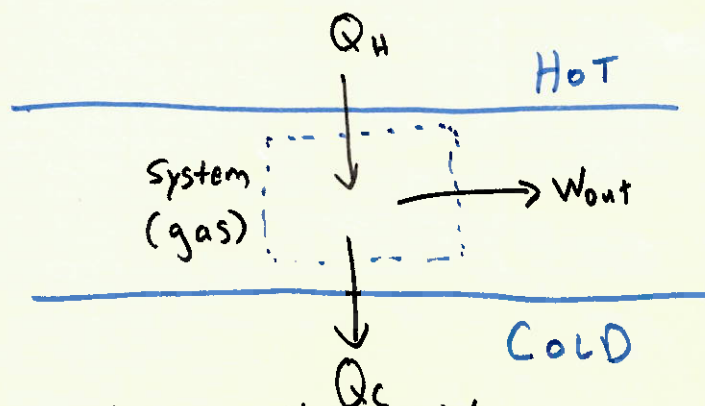 QH
HOT
System
(gas)
Wout
COLD
QC